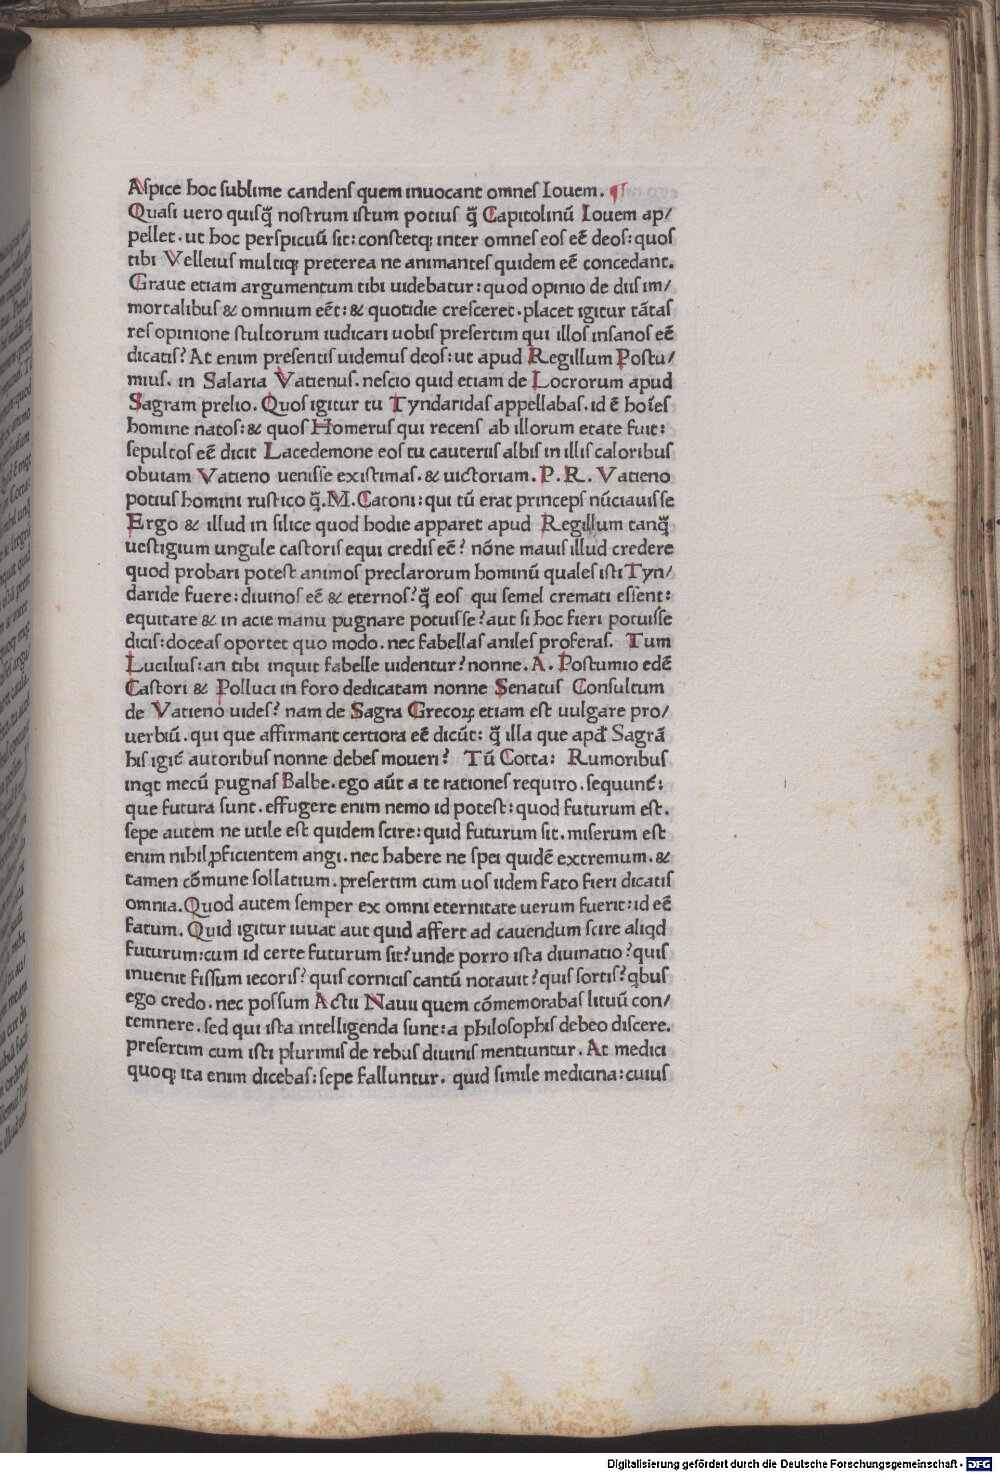 Aspice hoc sublime candens quem inuocant omnes Iouem. ¶
Quasi uero quisq̃ nostrum istum potius q̃ Capitolinū Iouem ap/
pellet. ut hoc perspicuū sit: constetq; inter omnes eos eē deos: quos
tibi Velleius multiq; preterea ne animantes quidem eē concedant.
Graue etiam argumentum tibi uidebatur: quod opinio de diis im/
mortalibus & omnium eēt: & quotidie cresceret. placet igitur tātas
res opinione stultorum iudicari uobis presertim qui illos insanos eē
dicatis? At enim presentis uidemus deos: ut apud Regillum Postu/
mius. in Salaria Vatienus. nescio quid etiam de Locrorum apud
Sagram prelio. Quos igitur tu Tyndaridas appellabas. id ē hoīes
homine natos: & quos Homerus qui recens ab illorum etate fuit:
sepultos eē dicit Lacedemone eos tu cauteriis albis in illis caloribus
obuiam Vatieno uenisse existimas. & uictoriam. P. R. Vatieno
potius homini rustico q̃. M. Catoni: qui tū erat princeps nūciauisse
Ergo & illud in silice quod hodie apparet apud Regillum tanq̃
uestigium ungule castoris equi credis eē? nōne mauis illud credere
quod probari potest animos preclarorum hominū quales isti Tyn/
daride fuere: diuinos eē & eternos? q̃ eos qui semel cremati essent:
equitare & in acie manu pugnare potuisse? aut si hoc fieri potuisse
dicis: doceas oportet quo modo. nec fabellas aniles proferas. Tum
Lucilius: an tibi inquit fabelle uidentur? nonne. A. Postumio edē
Castori & Polluci in foro dedicatam nonne Senatus Consultum
de Vatieno uides? nam de Sagra Grecoꝝ etiam est uulgare pro/
uerbiū. qui que affirmant certiora eē dicūt: q̃ illa que apđ Sagrā
his igit̄ autoribus nonne debes moueri? Tū Cotta: Rumoribus
inqt mecū pugnas Balbe. ego aūt a te rationes requiro. sequunt̄:
que futura sunt. effugere enim nemo id potest: quod futurum est.
sepe autem ne utile est quidem scire: quid futurum sit. miserum est
enim nihil ꝓficientem angi. nec habere ne spei quidē extremum. &
tamen cōmune sollatium. presertim cum uos iidem fato fieri dicatis
omnia. Quod autem semper ex omni eternitate uerum fuerit: id eē
fatum. Quid igitur iuuat aut quid affert ad cauendum scire aliqd
futurum: cum id certe futurum sit? unde porro ista diuinatio? quis
inuenit fissum iecoris? quis cornicis cantū notauit? quis sortis? qbus
ego credo. nec possum Actii Nauii quem cōmemorabas lituū con/
temnere. sed qui ista intelligenda sunt: a philosophis debeo discere.
presertim cum isti plurimis de rebus diuinis mentiuntur. At medici
quoq; ita enim dicebas: sepe falluntur. quid simile medicina: cuius
Digitalisierung gefördert durch die Deutsche Forschungsgemeinschaft - DFG